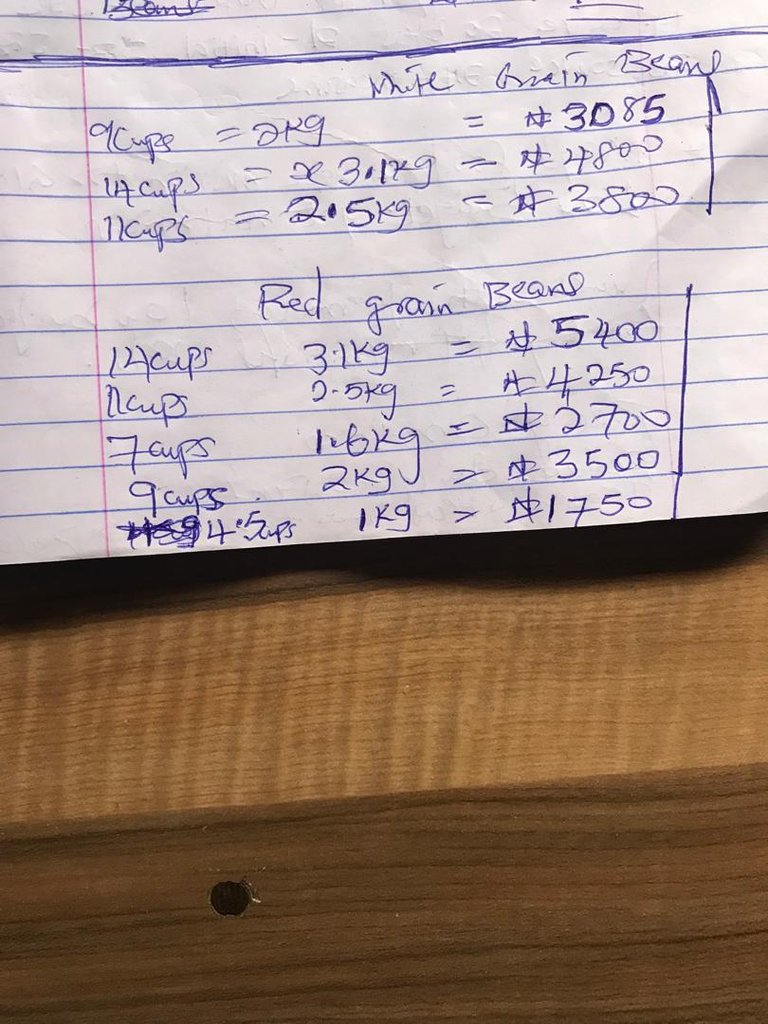 Beans
White Grain Beans
9cups = 2kg = ₦3085
14cups = 3.1kg = ₦4800
11cups = 2.5kg = ₦3800
Red grain Beans
14cups 3.1kg = ₦5400
11cups 2.5kg = ₦4250
7cups 1.6kg = ₦2700
9cups. 2kg = ₦3500
4.5cups 1kg = ₦1750